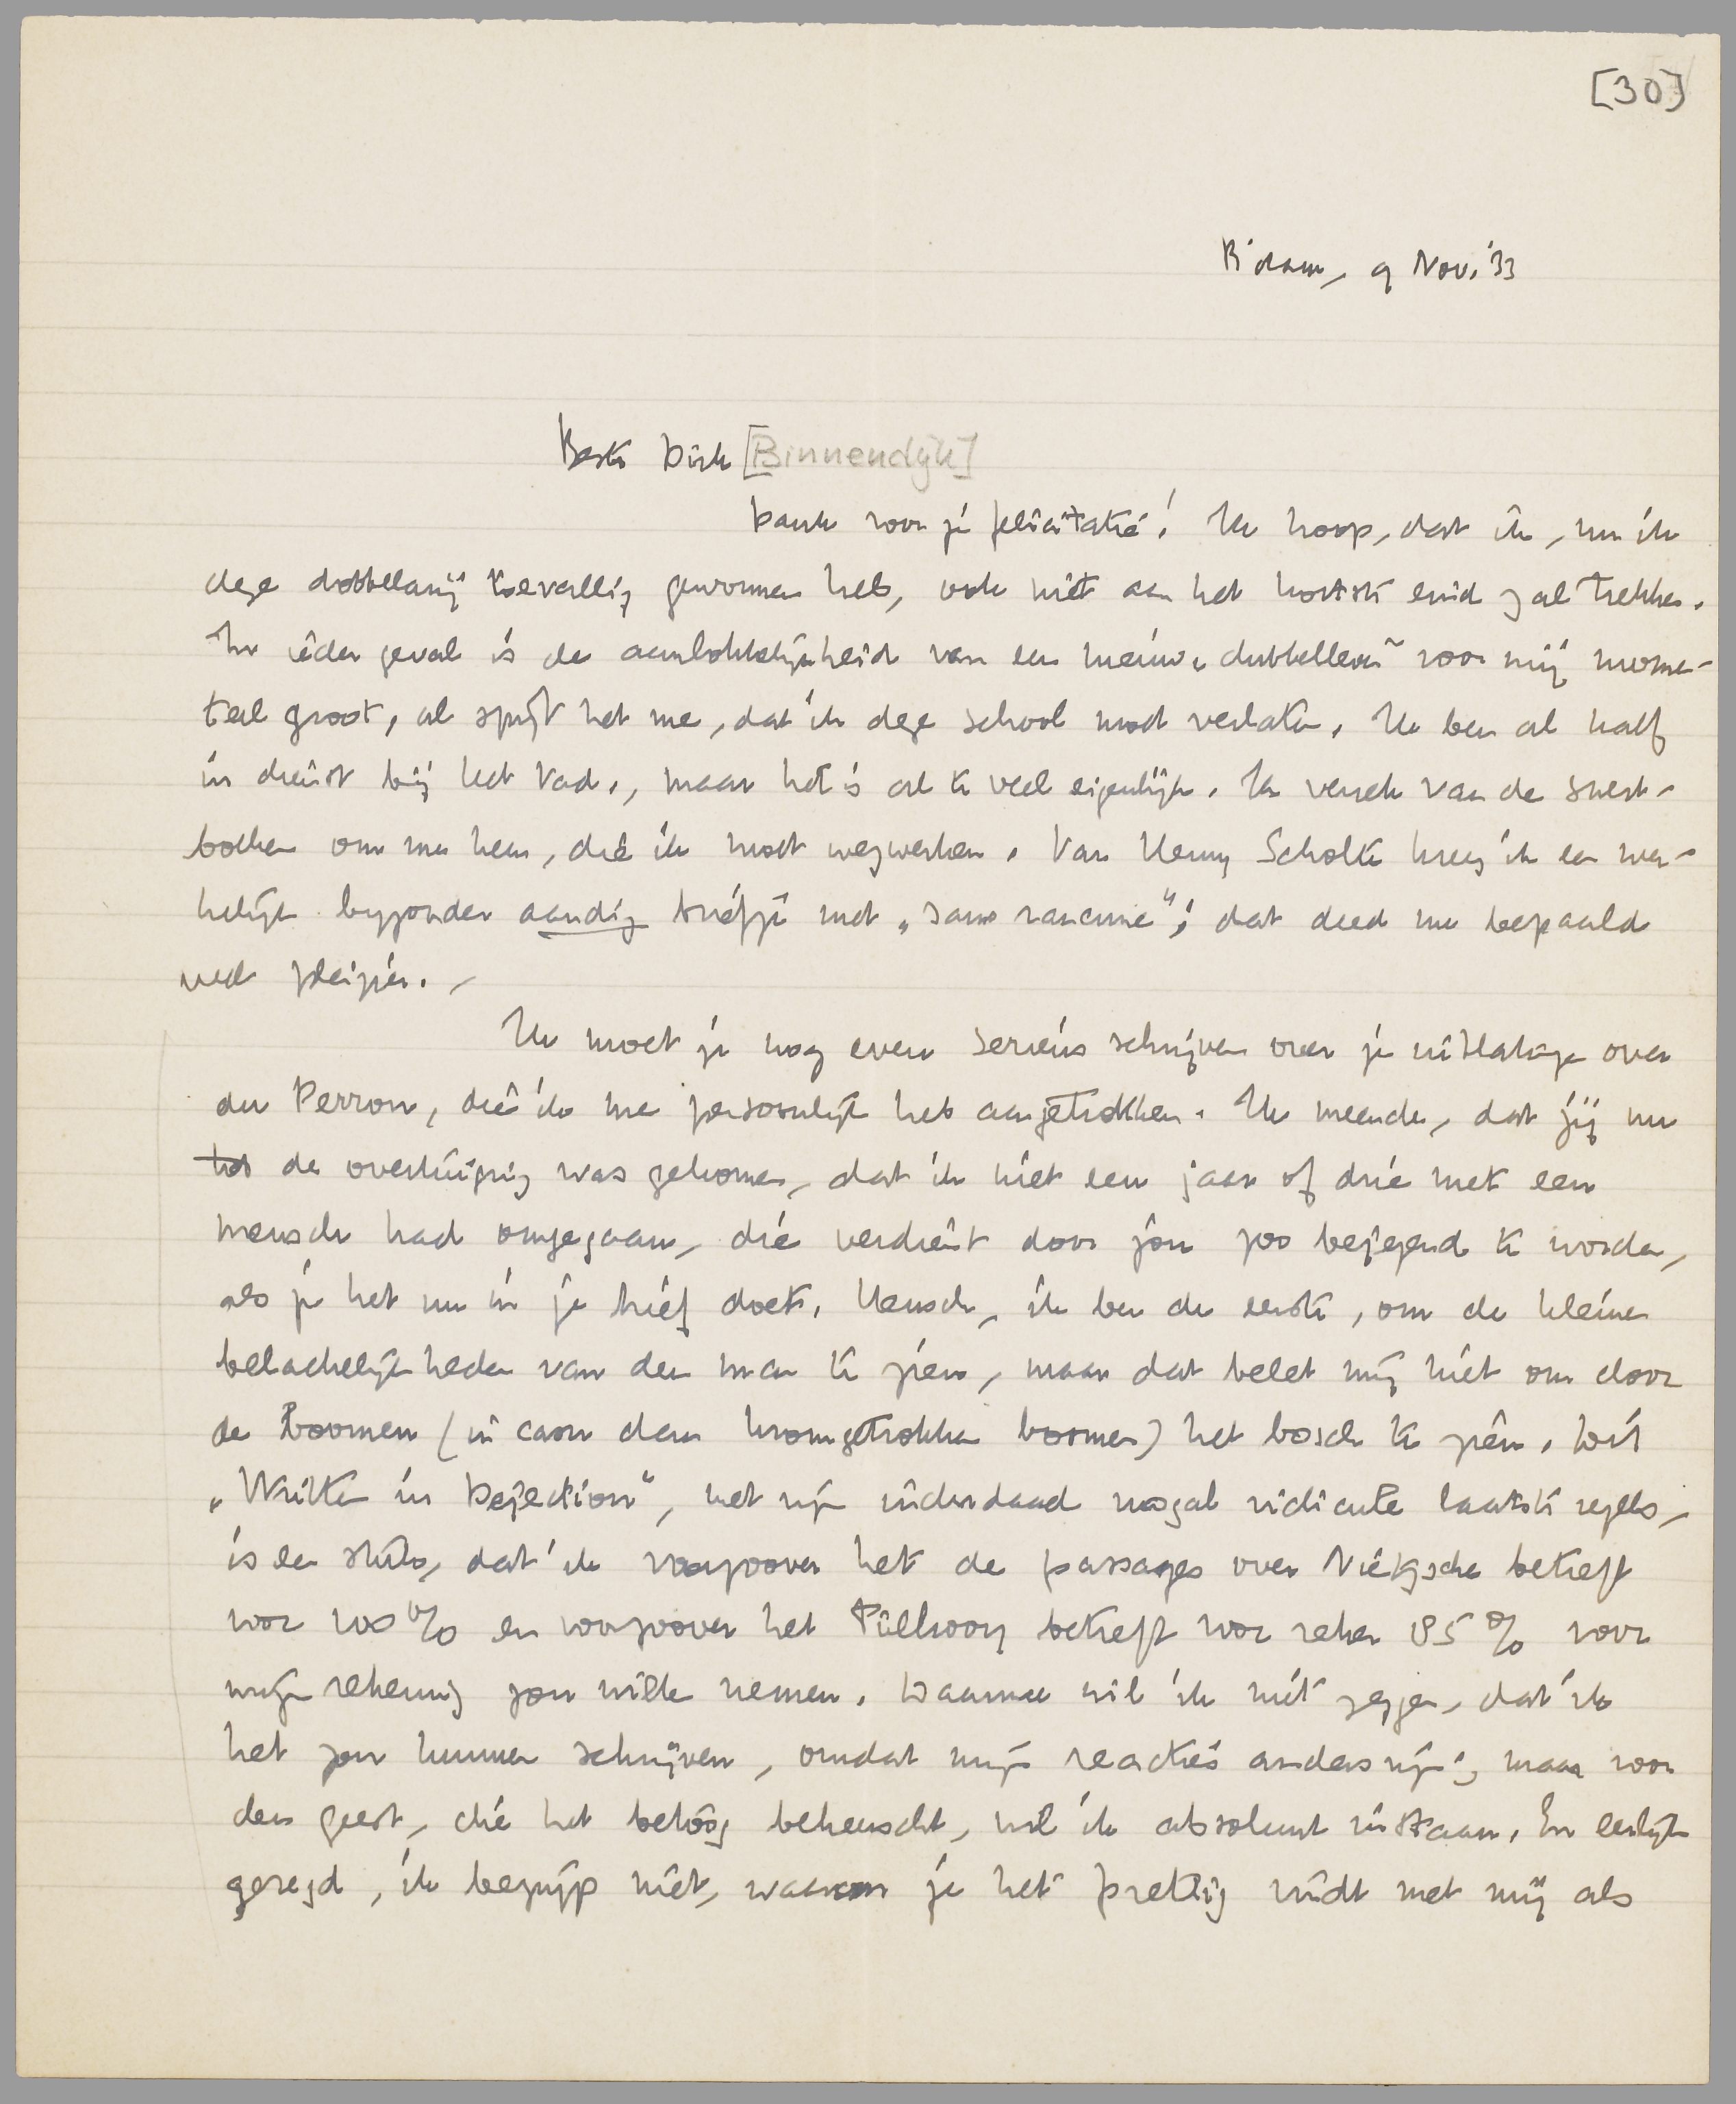 [30]
R'dam, 9 Nov. '33
Beste Dirk [Binnendijk]
Dank voor je felicitatie! Ik hoop, dat ik, nu ik
deze dobbelarij toevallig gewonnen heb, ook niet aan het kortste eind zal trekken.
In ieder geval is de aanlokkelijkheid van een nieuwe dubbelleven voor mij momen-
teel groot, al spijt het me, dat ik deze school moet verlaten. Ik ben al half
in dienst bij het Vad., maar het is al te veel eigenlijk. Ik verrek van de snert-
boeken om me heen, die ik moet wegwerken. Van Henny Scholte kreeg ik een wer-
kelijk byzonder aardig briefje met „sans rancune"; dat deed me bepaald
veel pleizier. –
Ik moet je nog even serieus schrijven over je uitlatinge over
du Perron, die ik me persoonlijk heb aangetrokken. Ik meende, dat jij nu
tot de overtuiging was gekomen, dat ik niet een jaar of drie met een
mensch had omgegaan, die verdient door jou zoo bejegend te worden,
als je het nu in je brief doet. Mensch, ik ben de eerste, om de kleine
belachelijkheden van den man te zien, maar dat belet mij niet om door
de boomen (in casu dan kromgetrokken boomen) het bosch te zien. Dit
„Written in Dejection", met zijn inderdaad nogal ridicule laatste regels,
is een stuk, dat ik voorzoover het de passages over Nietzsche betreft
voor 100% en voorzoover het Tielrooy betreft voor zeker 85% voor
mijn rekening zou willen nemen. Daarmee wil ik niet zeggen, dat ik
het zou kunnen schrijven, omdat mijn reacties anders zijn; maar voor
den geest, die het betoog beheerscht, wil ik absoluut instaan. En eerlijk
gezegd, ik begrijp niet, waarom je het prettig vindt met mij als